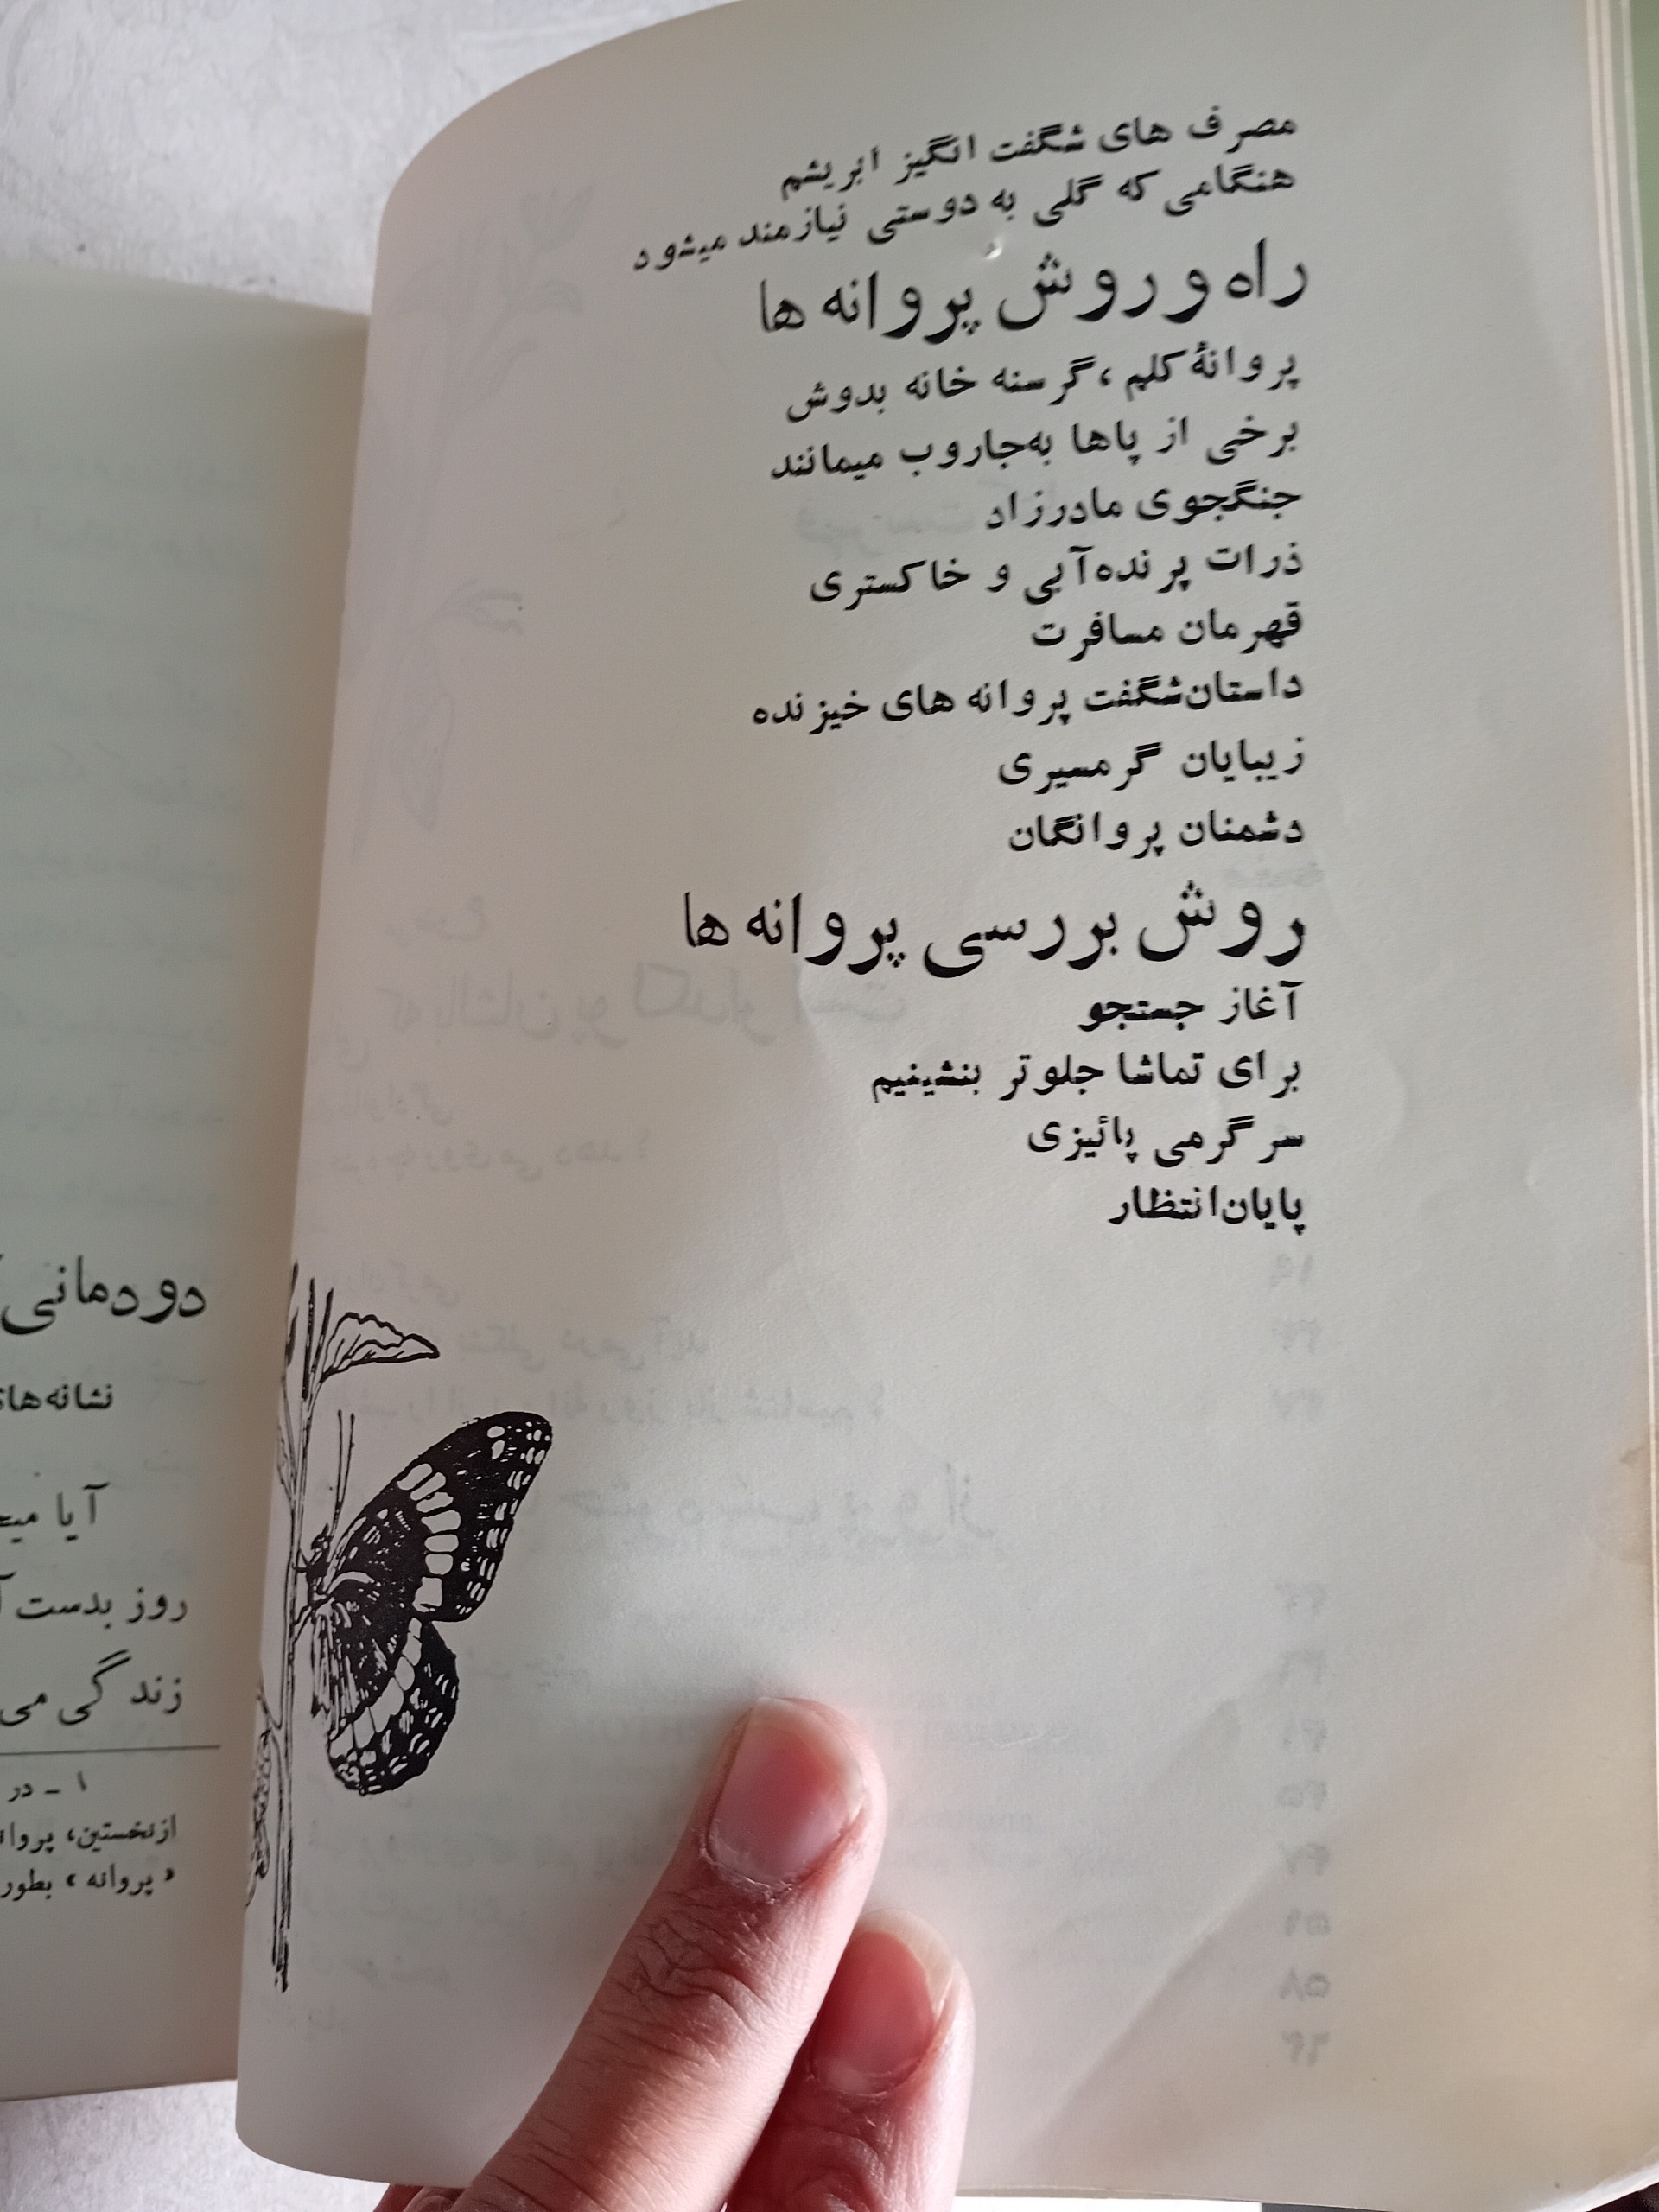 مصرف های شگفت انگیز ابریشم
هنگامی که گلی به دوستی نیازمند میشود
راه و روش پروانه ها
پروانهٔ کلم، گرسنه خانه بدوش
برخی از پاها به‌جاروب میمانند
جنگجوی مادرزاد
ذرات پرنده آبی و خاکستری
قهرمان مسافرت
داستان‌شگفت پروانه های خیزنده
زیبایان گرمسیری
دشمنان پروانگان
روش بررسی پروانه ها
آغاز جستجو
برای تماشا جلوتر بنشینیم
سرگرمی پائیزی
پایان‌انتظار
دودمانی
نشانه‌های
آیا
روز بدست
زندگی می
۱ - در
ازنخستین، پروانه
« پروانه » بطور